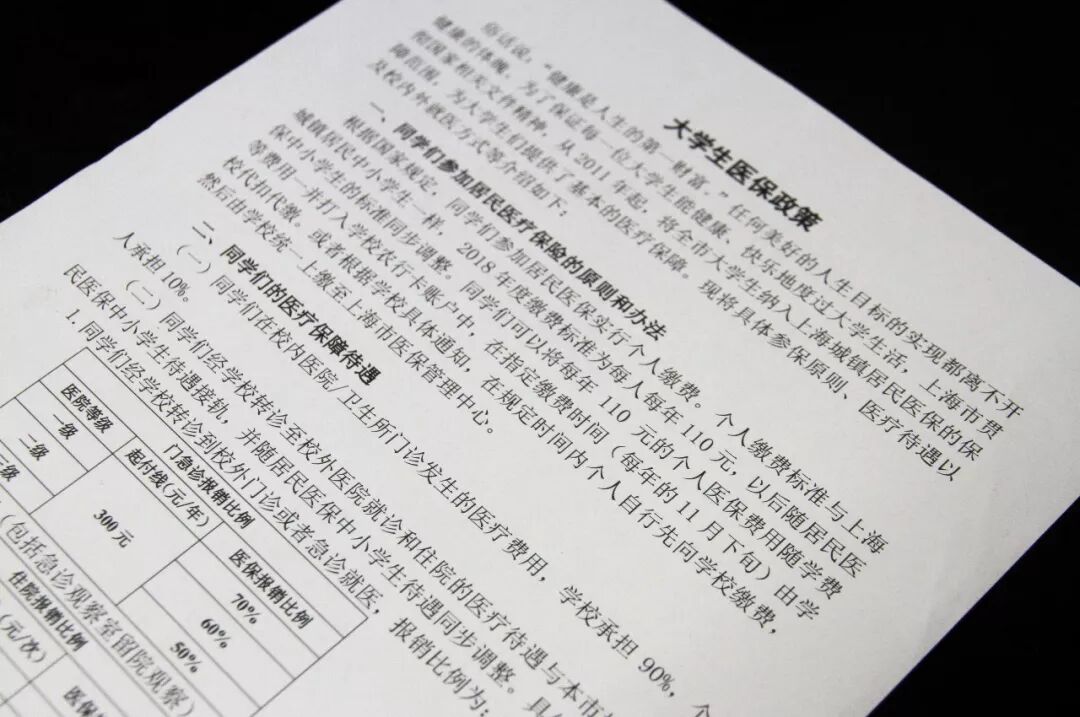 大学生医保政策
俗话说，“健康是人生的第一财富。”任何美好的人生目标的实现都离不开
健康的体魄。为了保证每一位大学生能健康、快乐地度过大学生活，上海市贯
彻国家相关文件精神，从2011年起，将全市大学生纳入上海城镇居民医保的保
障范围，为大学生们提供了基本的医疗保障。现将具体参保原则、医疗待遇以
及校内外就医方式等介绍如下：
一、同学们参加居民医疗保险的原则和办法
根据国家规定，同学们参加居民医保实行个人缴费。个人缴费标准与上海
城镇居民中小学生一样，2018年度缴费标准为每人每年110元，以后随居民医
保中小学生的标准同步调整。同学们可以将每年110元的个人医保费用随学费
等费用一并打入学校农行卡账户中，在指定缴费时间（每年的11月下旬）由学
校代扣代缴。或者根据学校具体通知，在规定时间内个人自行先向学校缴费，
然后由学校统一上缴至上海市医保管理中心。
二、同学们的医疗保障待遇
（一）同学们在校内医院/卫生所门诊发生的医疗费用，学校承担90%，个
人承担10%。
（二）同学们经学校转诊至校外医院就诊和住院的医疗待遇与本市
民医保中小学生待遇接轨，并随居民医保中小学生待遇同步调整。具
1.同学们经学校转诊到校外门诊或者急诊就医，报销比例为：
门急诊报销比例
医院等级 起付线（元/年） 医保报销比例
一级 300元 70%
二级 60%
三级 50%
（包括急诊观察室留院观察）
住院报销比例
（元/次） 医保